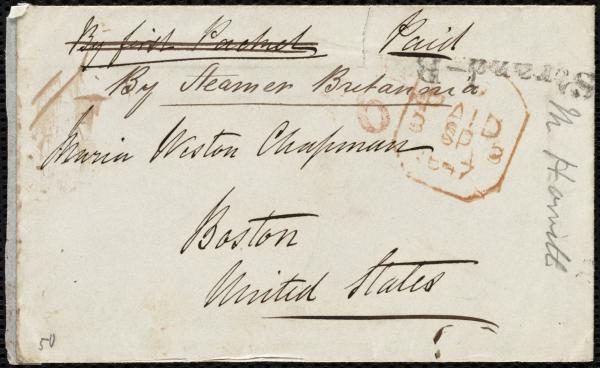 By first Packet Paid
By Steamer Britannia
Strand-B
PAID
3 SP 3
1847
Maria Weston Chapman
Boston
United States
M Howitt
50